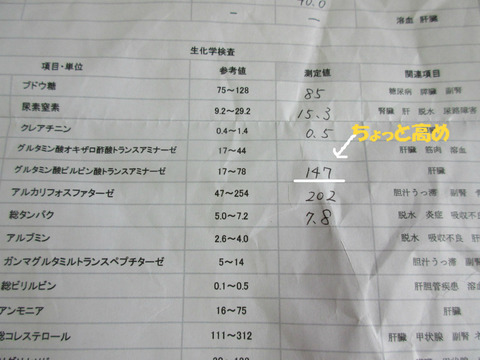 40.0
— — 溶血 肝臓
生化学検査
項目・単位 参考値 測定値 関連項目
ブドウ糖 75～128 85 糖尿病 膵臓 副腎
尿素窒素 9.2～29.2 15.3 腎臓 肝 脱水 尿路障害
クレアチニン 0.4～1.4 0.5 ちょっと高め
グルタミン酸オキザロ酢酸トランスアミナーゼ 17～44 肝臓 筋肉 溶血
グルタミン酸ピルビン酸トランスアミナーゼ 17～78 147 肝臓
アルカリフォスファターゼ 47～254 202 胆汁うっ滞 副腎
総タンパク 5.0～7.2 7.8 脱水 炎症 吸収不良
アルブミン 2.6～4.0 脱水 吸収不良 肝
ガンマグルタミルトランスペプチターゼ 5～14 胆汁うっ滞 副腎
総ビリルビン 0.1～0.5 肝胆管疾患 溶血
アンモニア 16～75 肝臓
総コレステロール 111～312 肝臓 甲状腺 副腎